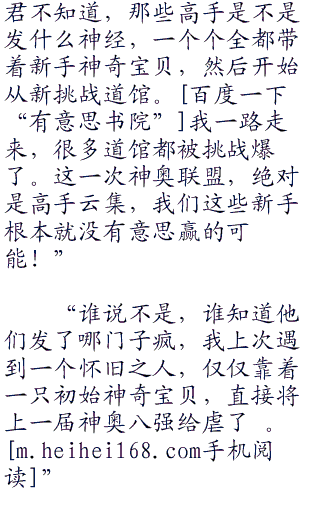 君不知道，那些高手是不是
发什么神经，一个个全都带
着新手神奇宝贝，然后开始
从新挑战道馆。[百度一下
“有意思书院”]我一路走
来，很多道馆都被挑战爆
了。这一次神奥联盟，绝对
是高手云集，我们这些新手
根本就没有意思赢的可
能！”
“谁说不是，谁知道他
们发了哪门子疯，我上次遇
到一个怀旧之人，仅仅靠着
一只初始神奇宝贝，直接将
上一届神奥八强给虐了 。
[m.heihei168.com手机阅
读]”